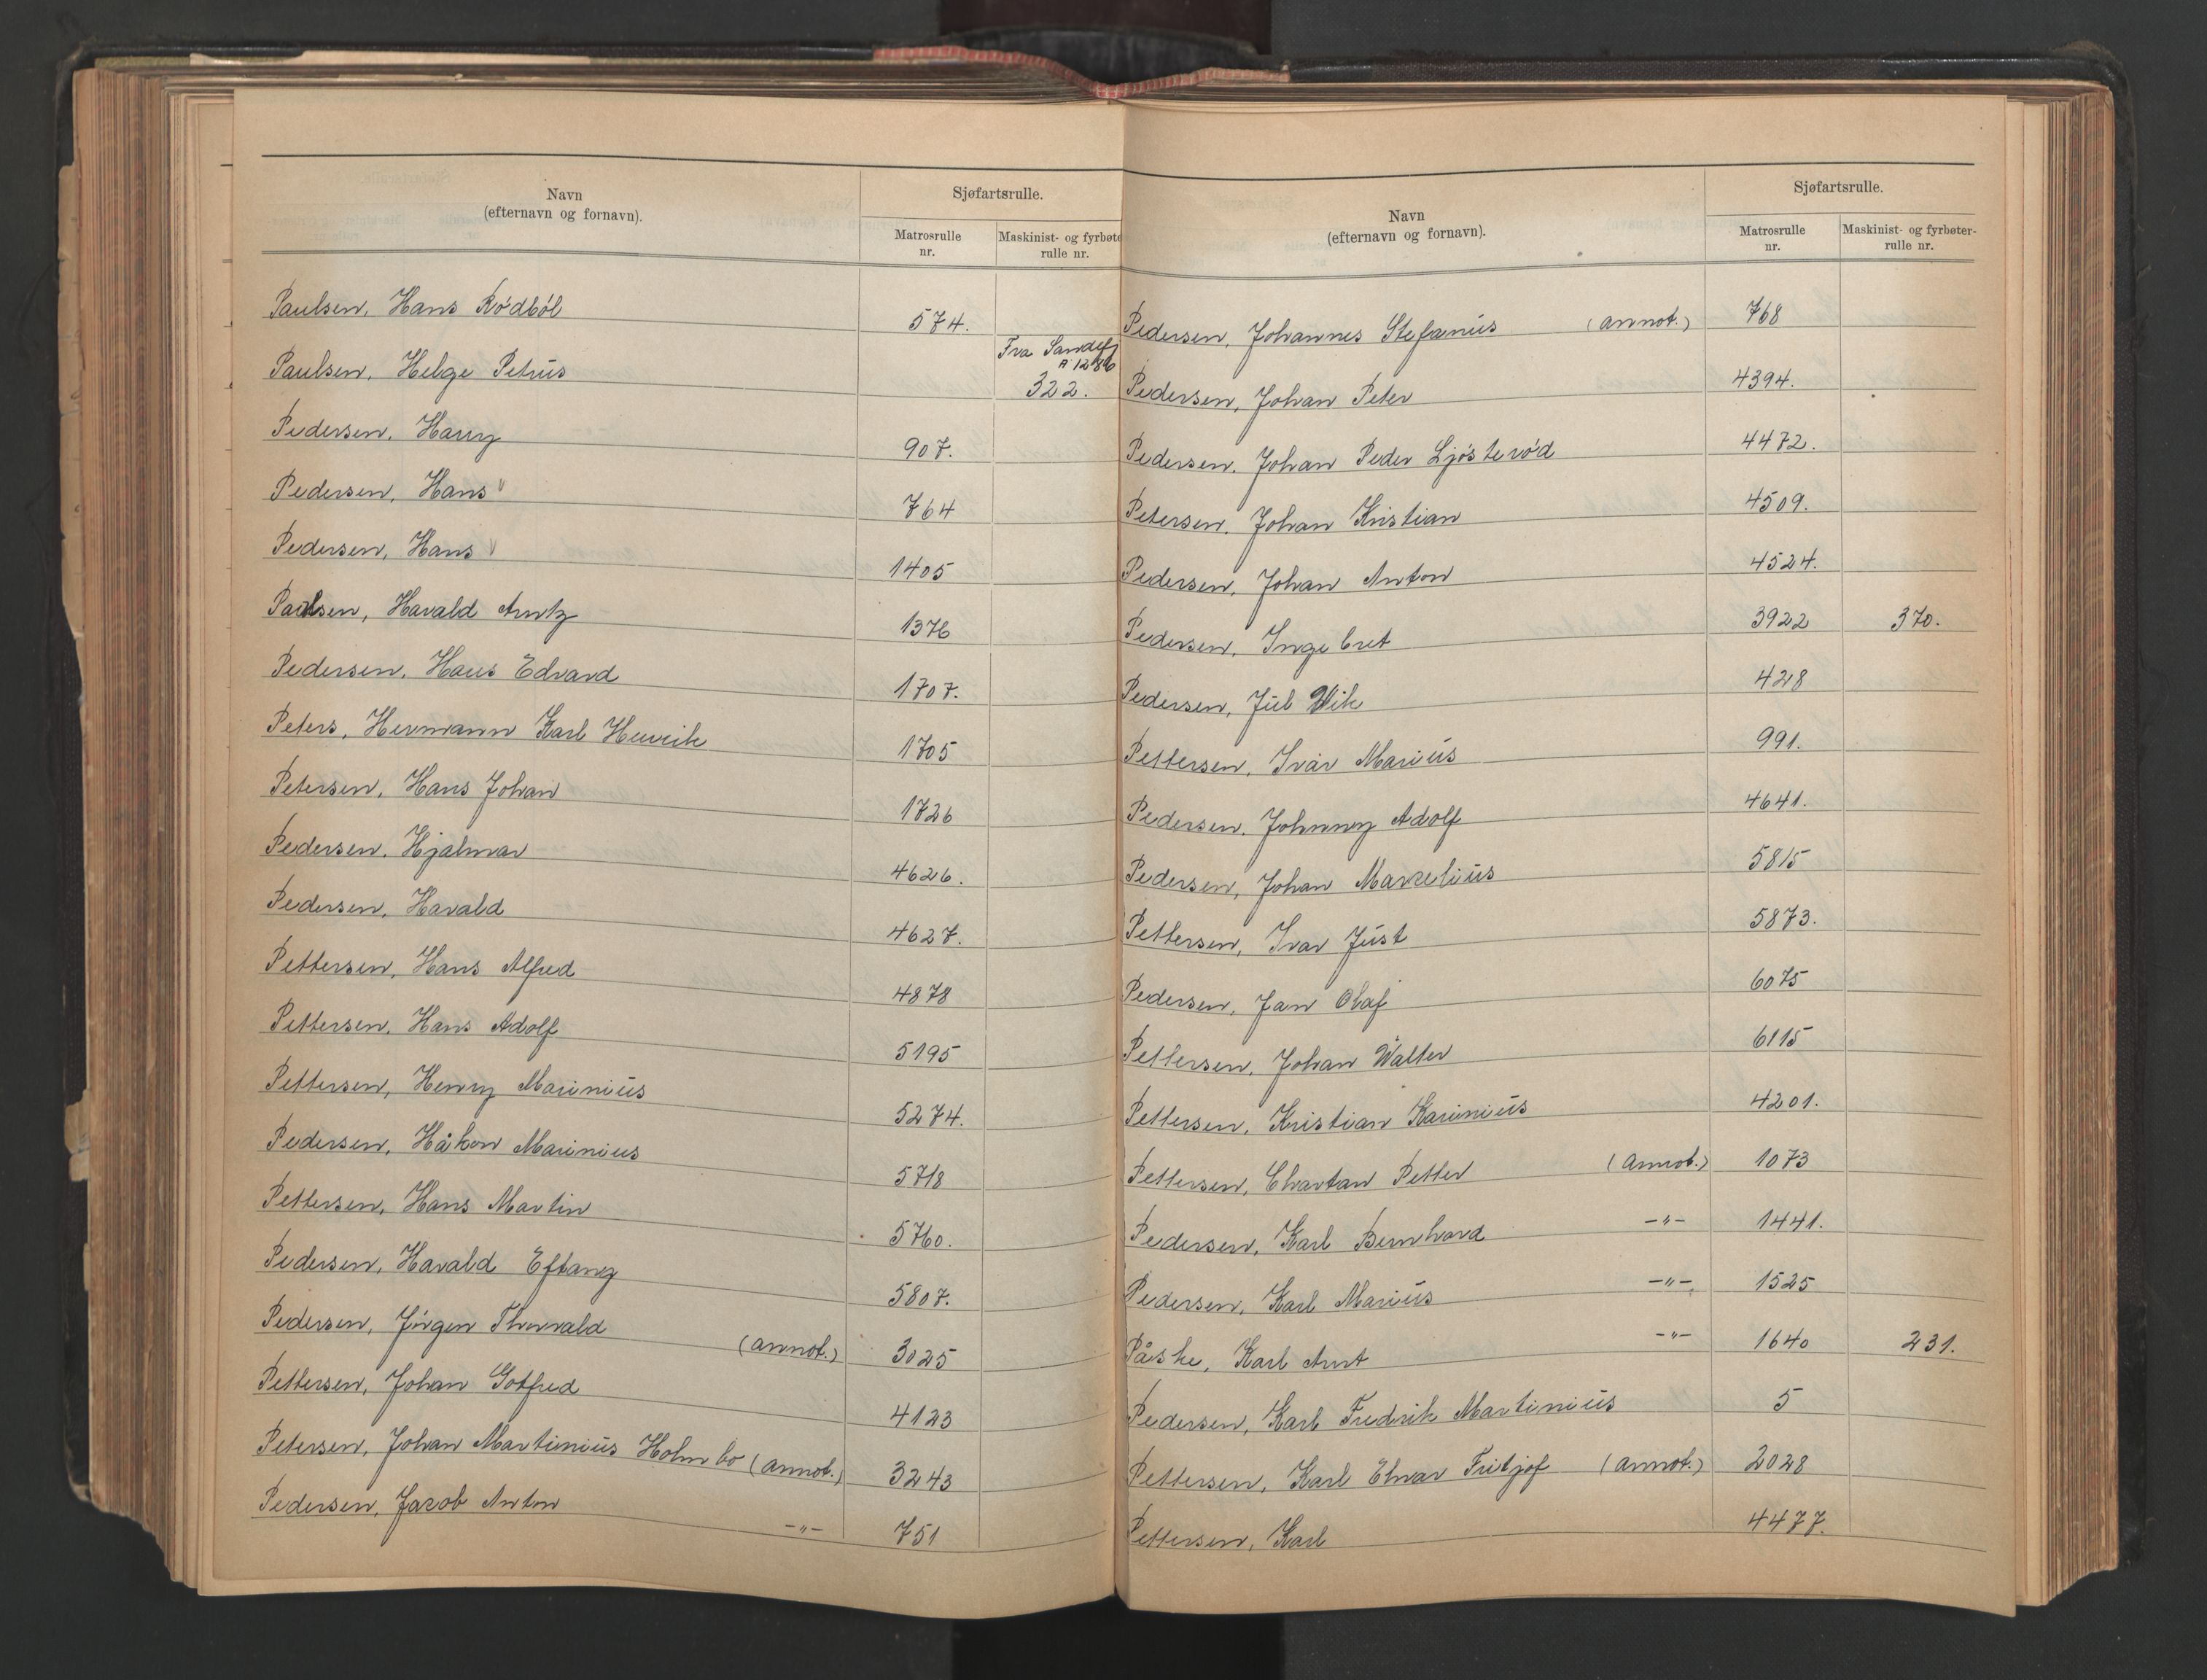 Navn
(efternavn og fornavn).
Sjøfartsrulle.
Matrosrulle
nr.
Maskinist- og fyrbøter
rulle nr.
Paulsen, Hans Rødbøl 574.
Fra Sandefj
A 1286
Paulsen, Helge Petrus 322.
Pedersen, Harry 907.
Pedersen, Hans 764
Pedersen, Hans 1405
Paulsen, Harald Arntz 1376
Pedersen, Hans Edvard 1707.
Peters, Hermann Karl Henrik 1705
Petersen, Hans Johan 1726
Pedersen, Hjalmar 4626.
Pedersen, Harald 4627.
Pettersen, Hans Alfred 4878
Pettersen, Hans Adolf 5195
Pettersen, Henry Marinius 5274.
Pedersen, Håkon Marinius 5718
Pettersen, Hans Martin 5760.
Pedersen, Harald Eftang 5807.
Pedersen, Jørgen Thorvald (annot.) 3025
Pettersen, Johan Gotfred 4123
Petersen, Johan Martinius Holmbo (annot.) 3243
Pedersen, Jacob Anton -"- 751
Navn
(efternavn og fornavn).
Sjøfartsrulle.
Matrosrulle
nr.
Maskinist- og fyrbøter-
rulle nr.
Pedersen, Johannes Stefanius (annot.) 768
Pedersen, Johan Peter 4394.
Pedersen, Johan Peder Ljøsterød 4472.
Petersen, Johan Kristian 4509.
Pedersen, Johan Anton 4524.
Pedersen, Ingebret 3922 370.
Pedersen, Jul Vik 428
Pettersen, Ivar Marius 991.
Pedersen, Johnny Adolf 4641.
Pedersen, Johan Marcelius 5815
Pettersen, Ivar Just 5873.
Pedersen, Jan Olaf 6075
Pettersen, Johan Walter 6115
Pettersen, Kristian Karinius 4201.
Pettersen, Chartan Petter (annot.) 1073
Pedersen, Karl Bernhard -"- 1441.
Pedersen, Karl Marius -"- 1525
Påske, Karl Arnt -"- 1640 231.
Pedersen, Karl Fredrik Martinius 5
Pettersen, Karl Elnar Fritjof (annot.) 2028
Pettersen, Karl 4477.